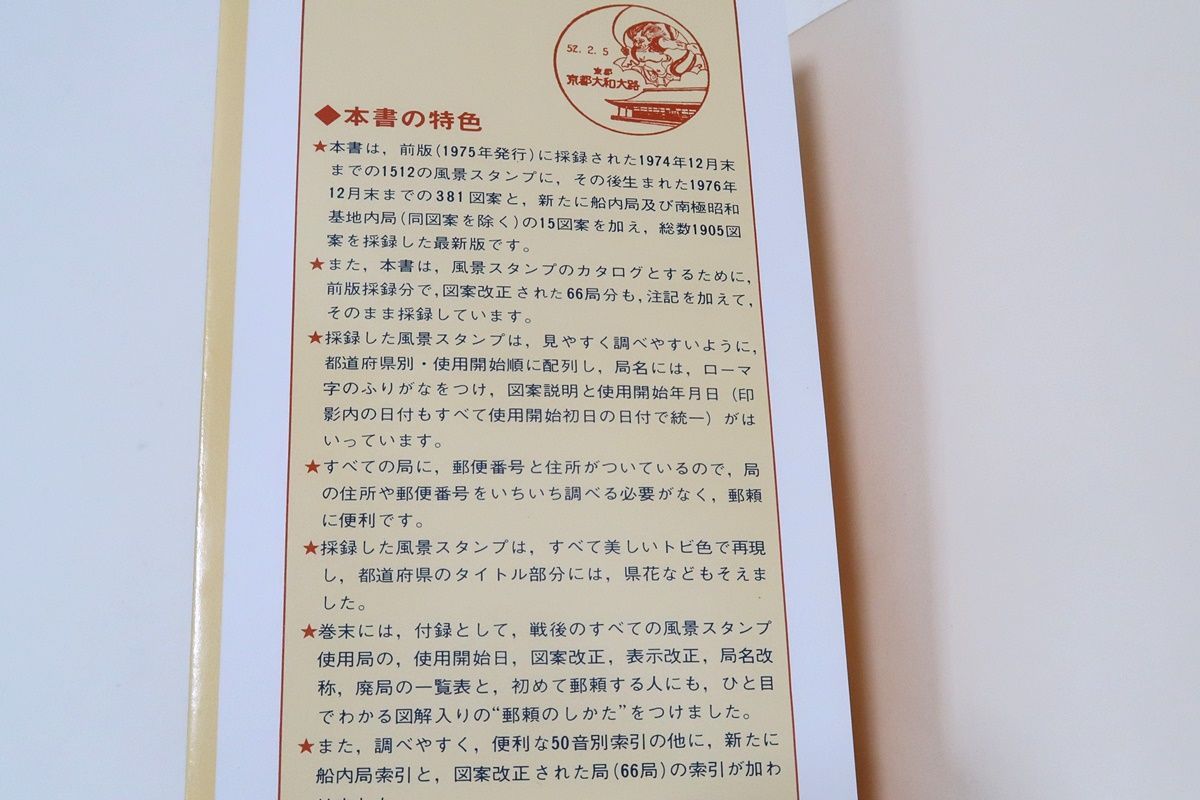 52. 2. 5
京都
京都大和大路
◆本書の特色
★本書は，前版(1975年発行)に採録された1974年12月末
までの1512の風景スタンプに，その後生まれた1976年
12月末までの381図案と，新たに船内局及び南極昭和
基地内局(同図案を除く)の15図案を加え，総数1905図
案を採録した最新版です。
★また，本書は，風景スタンプのカタログとするために，
前版採録分で，図案改正された66局分も，注記を加えて，
そのまま採録しています。
★採録した風景スタンプは，見やすく調べやすいように，
都道府県別・使用開始順に配列し，局名には，ローマ
字のふりがなをつけ，図案説明と使用開始年月日（印
影内の日付もすべて使用開始初日の日付で統一）がは
いっています。
★すべての局に，郵便番号と住所がついているので，局
の住所や郵便番号をいちいち調べる必要がなく，郵頼
に便利です。
★採録した風景スタンプは，すべて美しいトビ色で再現
し，都道府県のタイトル部分には，県花などもそえま
した。
★巻末には，付録として，戦後のすべての風景スタンプ
使用局の，使用開始日，図案改正，表示改正，局名改
称，廃局の一覧表と，初めて郵頼する人にも，ひと目
でわかる図解入りの“郵頼のしかた”をつけました。
★また，調べやすく，便利な50音別索引の他に，新たに
船内局索引と，図案改正された局(66局)の索引が加わ